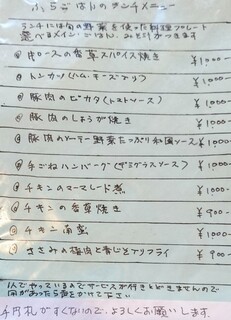 ふらごはんのランチメニュー
ランチには旬の野菜を使った料理プレート
選べるメイン・ごはん・おみそ汁がつきます
牛ロースの香草スパイス焼き ¥1,000-
トンカツ(ハム・チーズ入り) ¥1,000-
豚肉のピカタ(トマトソース) ¥1,000-
豚肉のしょうが焼き ¥1,000-
豚肉のソーテー野菜たっぷり和風ソース ¥1,000-
手ごねハンバーグ(デミグラスソース) ¥1,000-
チキンのマーマレード煮 ¥1,000-
チキンの香草焼き ¥900-
チキン南蛮 ¥1,000-
ささみの梅肉と青じそフライ ¥900-
1人でやっているのでサービスが行きとどきませんので
用があったら声をかけて下さい
千円札がすくないので、よろしくお願いします。